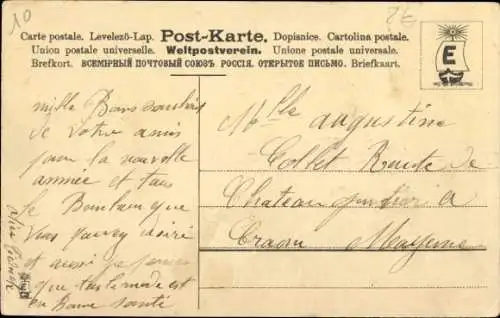 10
Carte postale. Levelező-Lap. Post-Karte. Dopisnice. Cartolina postale.
Union postale universelle. Weltpostverein. Unione postale universale.
Brefkort. ВСЕМІРНЫЙ ПОЧТОВЫЙ СОЮЗЪ. РОССІЯ. ОТКРЫТОЕ ПИСЬМО. Briefkaart.
E
mille Bons souhaits
de votre amis
pour la nouvelle
année et tous
le Bonheur que
vous pouvez désiré
et aussi je pense
que tout le monde est
en Bonne santé
Mlle augustine
Collet Route de
Chateau gontier a
Craon Mayenne